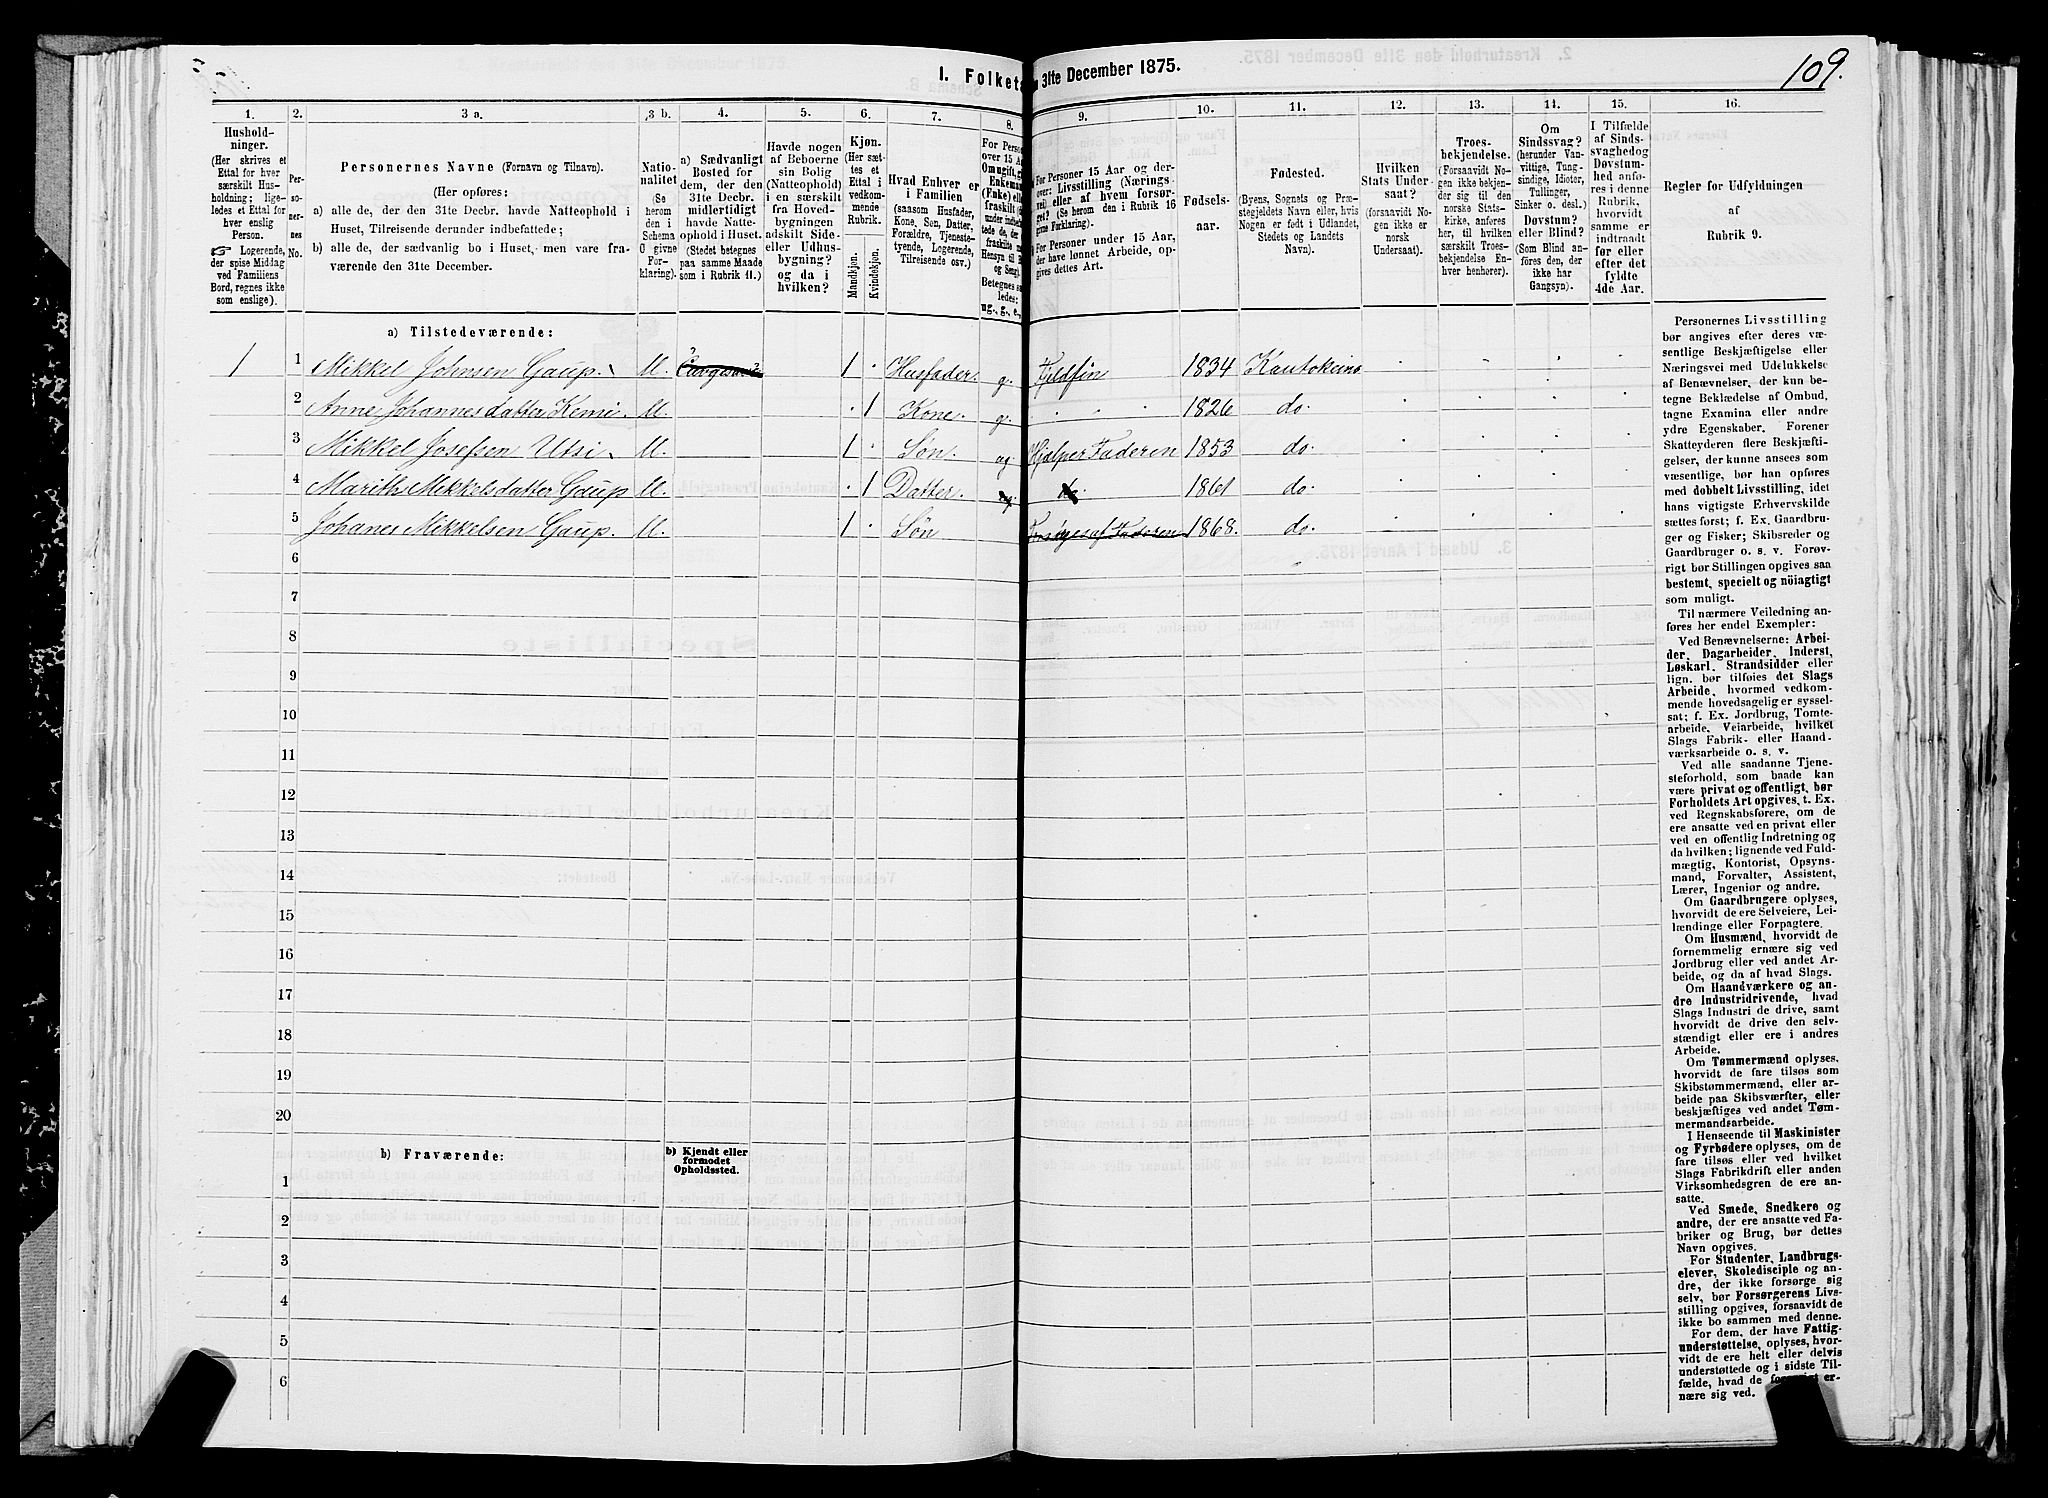 I. Folketæ
n 31te December 1875.
109.
1.
Hushold-
ninger.
(Her skrives et
Ettal for hver
særskilt Hus-
holdning; lige-
ledes et Ettal for
hver enslig
Person.
☞ Logerende,
der spise Middag
ved Familiens
Bord, regnes ikke
som enslige).
2.
Per-
so-
ner-
nes
No.
3 a.
Personernes Navne (Fornavn og Tilnavn).
(Her opføres:
a) alle de, der den 31te Decbr. havde Natteophold i
Huset, Tilreisende derunder indbefattede;
b) alle de, der sædvanlig bo i Huset, men vare fra-
værende den 31te December.
3 b.
Natio-
nalitet
(Se
herom
den i
Schema
O givne
For-
klaring).
4.
a) Sædvanligt
Bosted for
dem, der den
31te Decbr.
midlertidigt
havde Natte-
ophold i Huset.
(Stedet betegnes
paa samme Maade
som i Rubrik 11.)
5.
Havde nogen
af Beboerne
sin Bolig
(Natteophold)
i en særskilt
fra Hoved-
bygningen
adskilt Side-
eller Udhus-
bygning?
og da i
hvilken?
6.
Kjøn.
(Her sæt-
tes et
Ettal i
vedkom-
mende
Rubrik.
Mandkjøn.
Kvindekjøn.
7.
Hvad Enhver er
i Familien
(saasom Husfader,
Kone, Søn, Datter,
Forældre, Tjeneste-
tyende, Logerende,
Tilreisende osv.)
8.
For Person
over 15 Aa
Om ugift, g
Enkema
(Enke) ell
fraskilt
Betegnes s
ledes:
ug., g., e.,
9.
For Personer 15 Aar og der-
over: Livsstilling (Nærings-
vei) eller af hvem forsør-
get? (Se herom den i Rubrik 16
givne Forklaring.)
For Personer under 15 Aar,
der have lønnet Arbeide, op-
gives dettes Art.
10.
Fødsels-
aar.
11.
Fødested.
(Byens, Sognets og Præ-
stegjeldets Navn eller, hvis
Nogen er født i Udlandet,
Stedets og Landets
Navn).
12.
Hvilken
Stats Under-
saat?
(forsaavidt No-
gen ikke er
norsk
Undersaat).
13.
Troes-
bekjendelse.
(Forsaavidt No-
gen ikke bekjen-
der sig til den
norske Stats-
kirke, anføres
her, til hvilken
særskilt Troes-
bekjendelse En-
hver henhører).
14.
Om
Sindssvag?
(herunder Van-
vittige, Tung-
sindige, Idioter,
Tullinger,
Sinker o. desl.)
Døvstum?
eller Blind?
(Som Blind an-
føres den, der
ikke har
Gangsyn).
15.
I Tilfælde
af Sinds-
svaghed og
Døvstum-
hed anfø-
res i denne
Rubrik,
hvorvidt
samme er
indtraadt
før eller
efter det
fyldte
4de Aar.
16.
Regler for Udfyldningen
af
Rubrik 9.
a) Tilstedeværende:
1 1 Mikkel Johnsen Gaup. M. 1 Husfader. g. Fjeldfin 1834 Kautokeino
2 Anne Johannesdatter Kemi. M. 1 Kone. g. 1826 do.
3 Mikkel Josefsen Utsi M. 1 Søn. ug. Hjælper Faderen 1853 do.
4 Marith Mikkelsdatter Gaup M. 1 Datter. ug. do. 1861 do.
5 Johanes Mikkelsen Gaup. M. 1 Søn Forsørges af Faderen 1868. do.
6
7
8
9
10
11
12
13
14
15
16
17
18
19
20
b) Fraværende:
b) Kjendt eller
formodet
Opholdssted.
1
2
3
4
5
6
Personernes Livsstilling
bør angives efter deres væ-
sentlige Beskjæftigelse eller
Næringsvei med Udelukkelse
af Benævnelser, der kun be-
tegne Beklædelse af Ombud,
tagne Examina eller andre
ydre Egenskaber. Forener
Skatteyderen flere Beskjæfti-
gelser, der kunne ansees som
væsentlige, bør han opføres
med dobbelt Livsstilling, idet
hans vigtigste Erhvervskilde
sættes først; f. Ex. Gaardbru-
ger og Fisker; Skibsreder og
Gaardbruger o. s. v. Forøv-
rigt bør Stillingen opgives saa
bestemt, specielt og nöiagtigt
som muligt.
Til nærmere Veiledning an-
føres her endel Exempler:
Ved Benævnelserne: Arbei-
der, Dagarbeider, Inderst,
Løskarl, Strandsidder eller
lign. bør tilføies det Slags
Arbeide, hvormed vedkom-
mende hovedsagelig er syssel-
sat; f. Ex. Jordbrug, Tomte-
arbeide, Veiarbeide, hvilket
Slags Fabrik- eller Haand-
værksarbeide o. s. v.
Ved alle saadanne Tjene-
steforhold, som baade kan
være privat og offentligt, bør
Forholdets Art opgives, t. Ex.
ved Regnskabsførere, om de
ere ansatte ved en privat eller
ved en offentlig Indretning og
da hvilken; lignende ved Fuld-
mægtig, Kontorist, Opsyns-
mand, Forvalter, Assistent,
Lærer, Ingeniør og andre.
Om Gaardbrugere oplyses,
hvorvidt de ere Selveiere, Lei-
lændinge eller Forpagtere.
Om Husmænd, hvorvidt de
fornemmelig ernære sig ved
Jordbrug eller ved andet Ar-
beide, og da af hvad Slags.
Om Haandværkere og an-
dre Industridrivende, hvad
Slags Industri de drive, samt
hvorvidt de drive den selv-
stændigt eller ere i andres
Arbeide.
Om Tømmermænd oplyses,
hvorvidt de fare tilsøs som
Skibstømmermænd, eller ar-
beide paa Skibsværfter, eller
beskjæftiges ved andet Tøm-
mermandsarbeide.
I Henseende til Maskinister
og Fyrbødere oplyses, om de
fare tilsøs eller ved hvilket
Slags Fabrikdrift eller anden
Virksomhedsgren de ere an-
satte.
Ved Smede, Snedkere og
andre, der ere ansatte ved Fa-
briker og Brug, bør dettes
Navn opgives.
For Studenter, Landbrugs-
elever, Skoledisciple og an-
dre, der ikke forsørge sig
selv, bør Forsørgerens Livs-
stilling opgives, forsaavidt de
ikke bo sammen med denne.
For dem, der have Fattig-
understøttelse, oplyses, hvor-
vidt de ere helt eller delvis
understøttede og i sidste Til-
fælde, hvad de forøvrigt er-
nære sig ved.